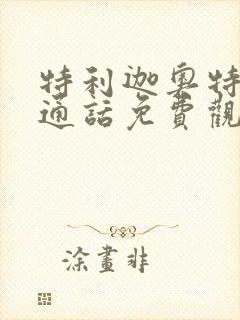 特利迦奥特
通話免費觀
涂畫非